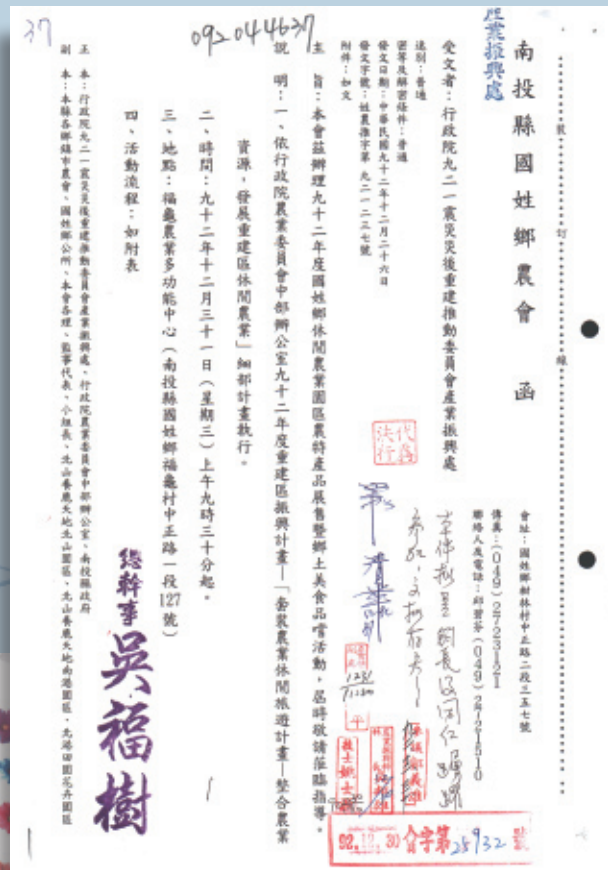 37
092044637
產業振興處
裝 訂 線
南投縣國姓鄉農會 函
會址：國姓鄉林村中正路二段三五七號
傳真：(049)2723121
受文者：行政院九二一震災災後重建推動委員會產業振興處
速別：普通
密等及解密條件：普通
發文日期：中華民國九十二年十二月二十六日
發文字號：姓農推字第 九二一二三七號
附件：如文
代為決行
主 旨：本會茲辦理九十二年度國姓鄉休閒農業園區農特產品展售暨鄉土美食品嚐活動，屆時敬請蒞臨指導。
說 明：一、依行政院農業委員會中部辦公室九十二年度重建區振興計畫—「套裝農業休閒旅遊計畫—整合農業
資源，發展重建區休閒農業」細部計畫執行。
二、時間：九十二年十二月三十一日（星期三）上午九時三十分起。
三、地點：福龜農業多功能中心（南投縣國姓鄉福龜村中正路一段127號）
四、活動流程：如附表
總幹事 吳福樹
正 本：行政院九二一震災災後重建推動委員會產業振興處、行政院農業委員會中部辦公室、南投縣政府
副 本：本縣各鄉鎮市農會、國姓鄉公所、本會各理、監事代表、小組長、北山養鹿天地北山園區、北山養鹿天地南港園區、北港田園花卉園區
92.12.30 收字第25932號